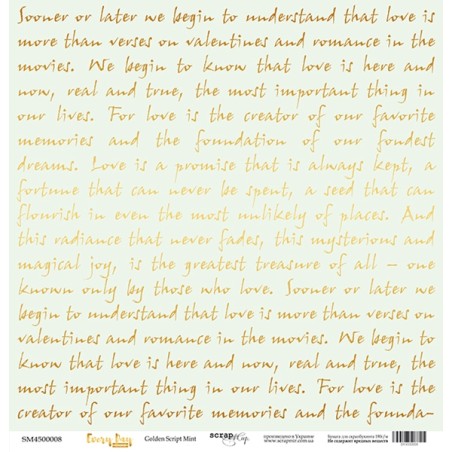 Sooner or later we begin to understand that love is
more than verses on valentines and romance in the
movies. We begin to know that love is here and
now, real and true, the most important thing in
our lives. For love is the creator of our favorite
memories and the foundation of our fondest
dreams. Love is a promise that is always kept, a
fortune that can never be spent, a seed that can
flourish in even the most unlikely of places. And
this radiance that never fades, this mysterious and
magical joy, is the greatest treasure of all – one
known only by those who love. Sooner or later we
begin to understand that love is more than verses on
valentines and romance in the movies. We begin to
know that love is here and now, real and true, the
most important thing in our lives. For love is the
creator of our favorite memories and the founda-
SM4500008 Every Day Golden Script Mint scrapmir произведено в Украине
www.scrapmir.com.ua
Не содержит вредных веществ